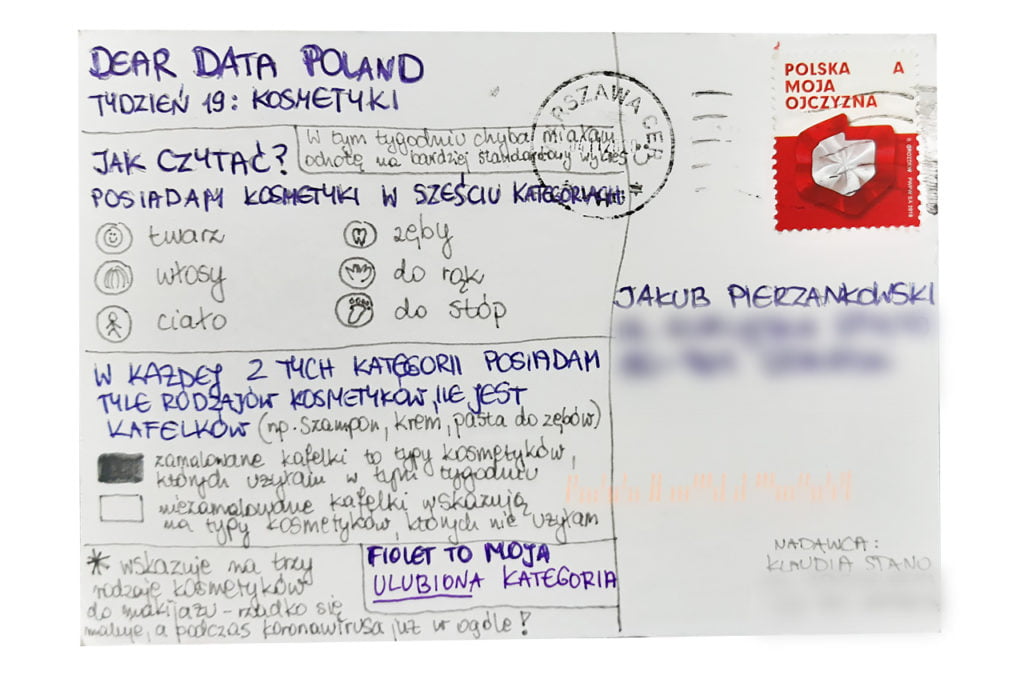 DEAR DATA POLAND
TYDZIEŃ 19: KOSMETYKI
W tym tygodniu chyba miałam
ochotę na bardziej standardowy wykres
JAK CZYTAĆ?
POSIADAM KOSMETYKI W SZEŚCIU KATEGORIACH:
twarz
zęby
włosy
do rąk
ciało
do stóp
W KAŻDEJ Z TYCH KATEGORII POSIADAM
TYLE RODZAJÓW KOSMETYKÓW, ILE JEST
KAFELKÓW (np. szampon, krem, pasta do zębów)
zamalowane kafelki to typy kosmetyków,
których użyłam w tym tygodniu
niezamalowane kafelki wskazują
na typy kosmetyków, których nie użyłam
* wskazuje na trzy
rodzaje kosmetyków
do makijażu - rzadko się
maluję, a podczas koronawirusa już w ogóle!
FIOLET TO MOJA
ULUBIONA KATEGORIA
RSZAWA CER
POLSKA A
MOJA
OJCZYZNA
JAKUB PIERZANKOWSKI
NADAWCA:
KLAUDIA STANO